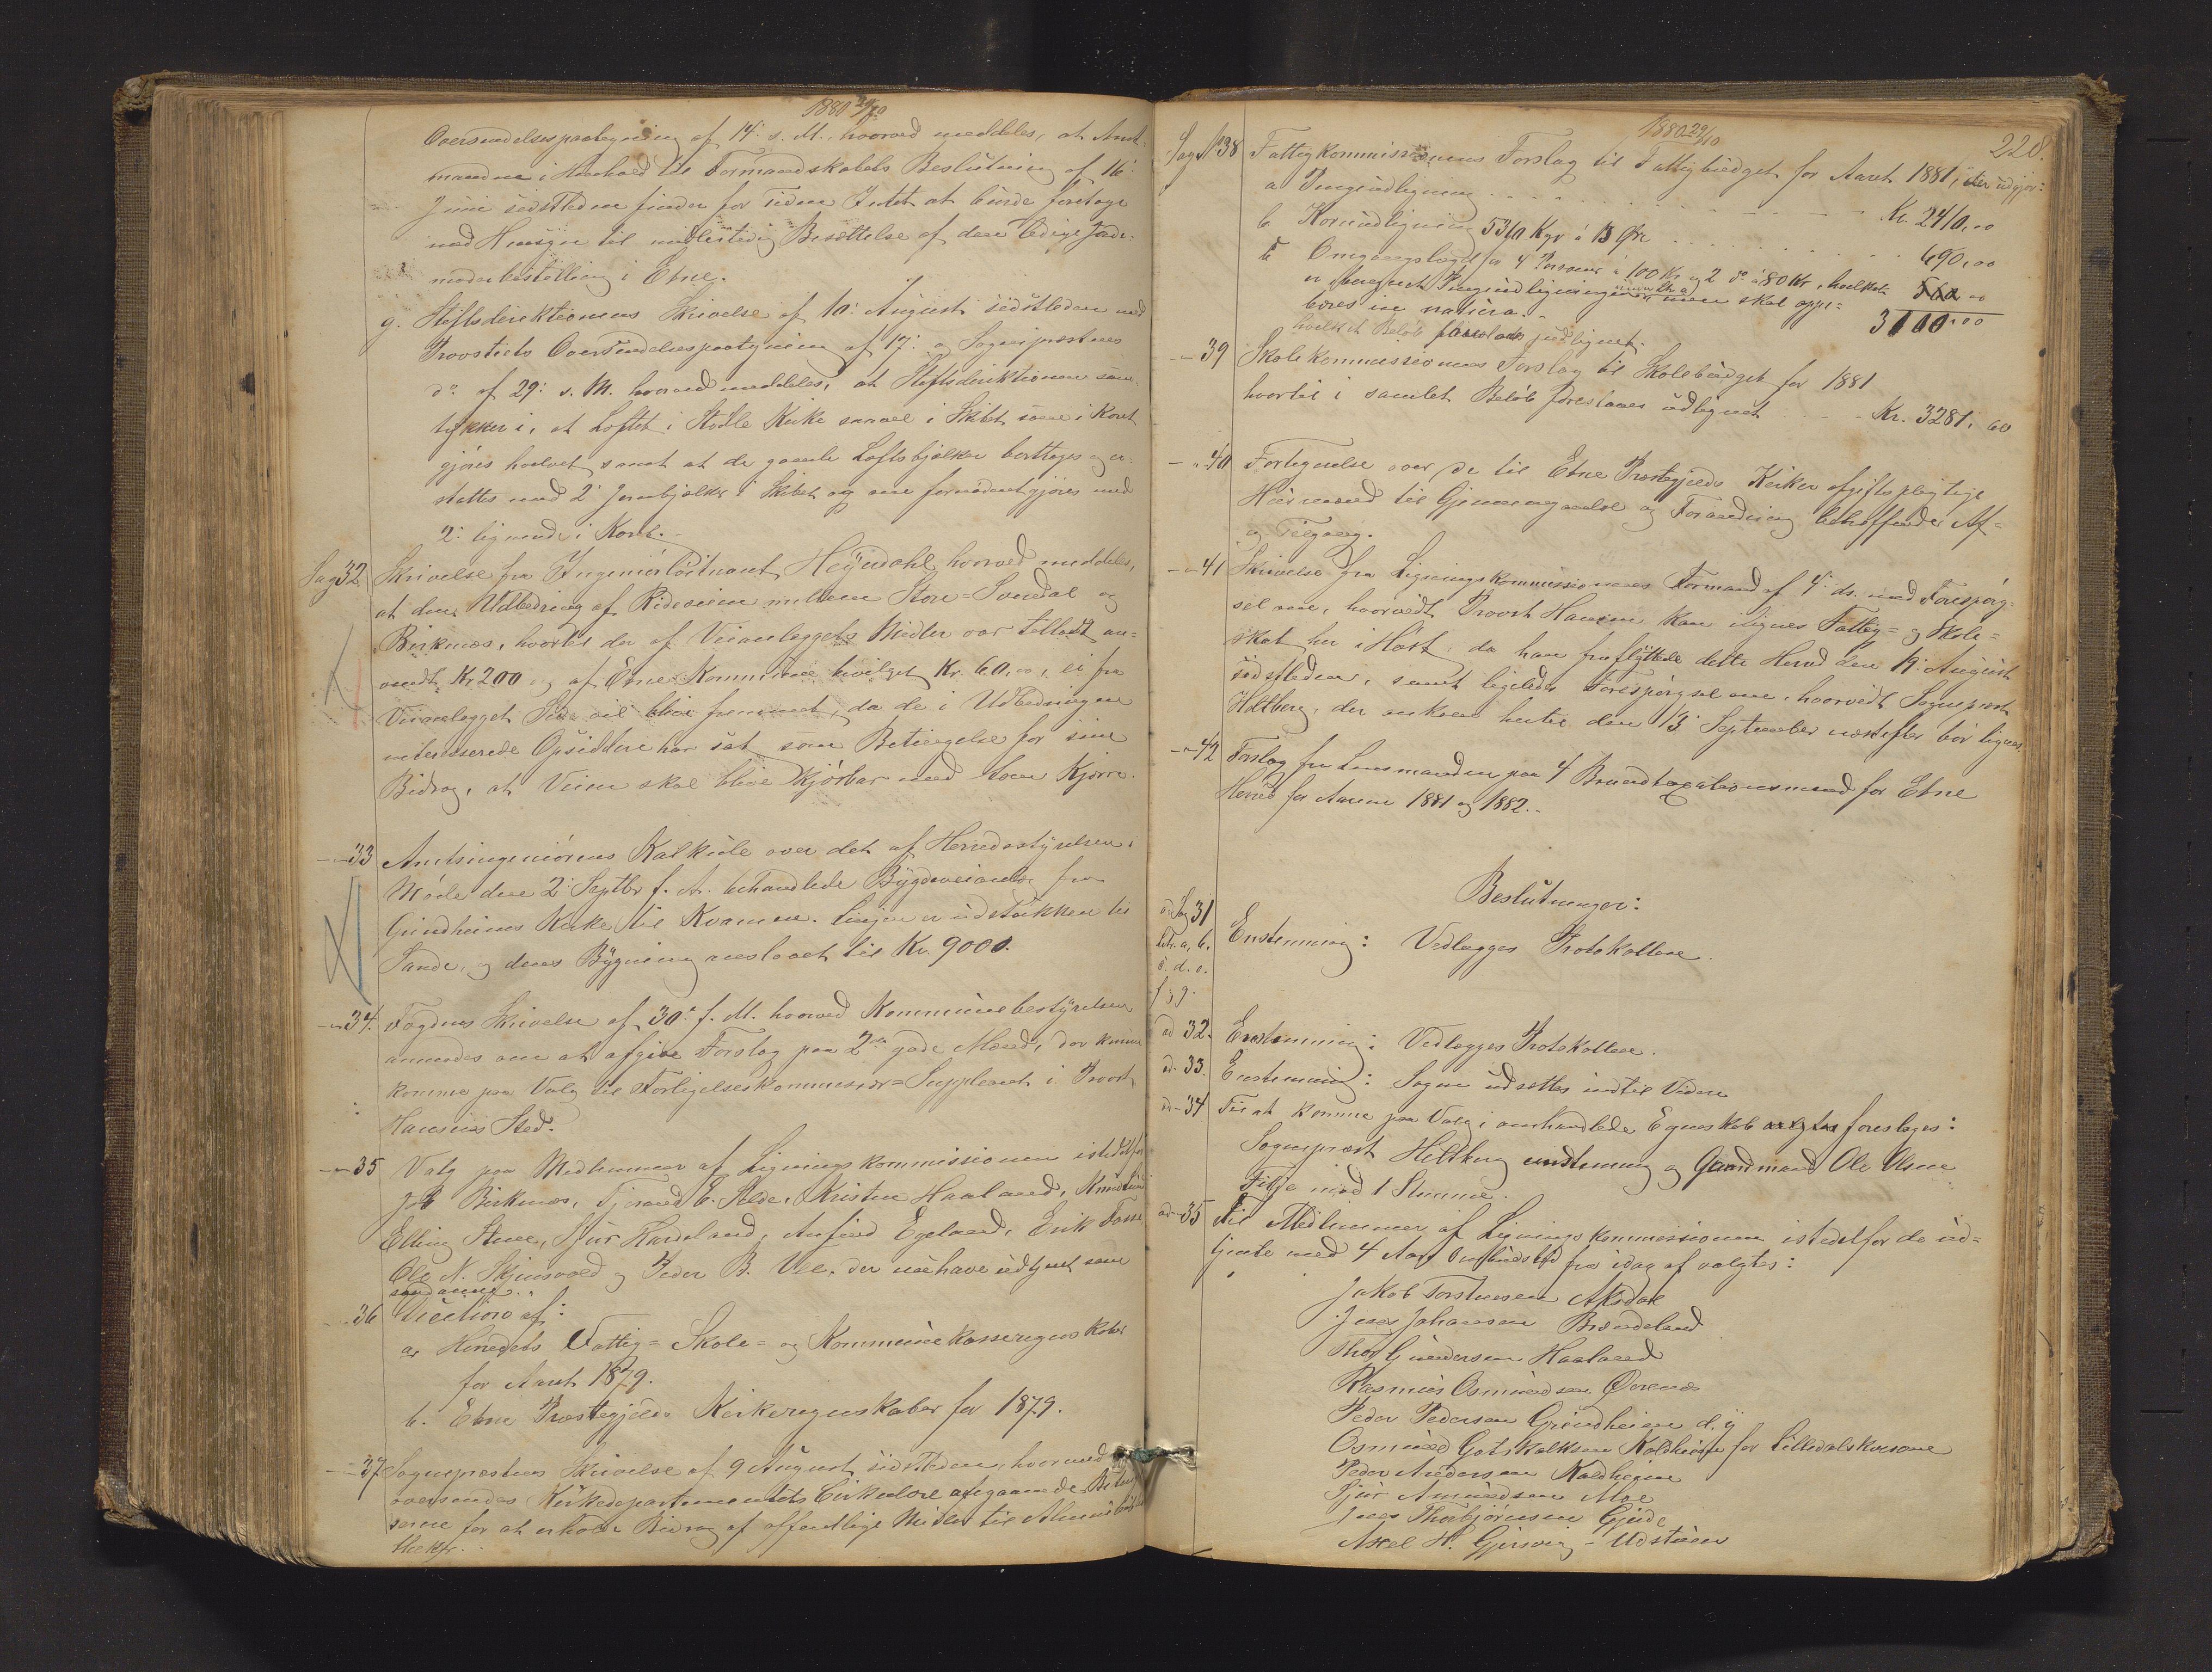 1880 29/10
Oversendelsespaategning af 14: s. M. hvorved meddeles, at Amt-
manden i Henhold til Formandskabets Beslutning af 16:
Juni sidstleden finder for Tiden Intet at burde foretage
med Hensyn til midlertidig Besættelse af den ledige Jorde-
moderbestilling i Etne.
g. Stiftsdirektionens Skrivelse af 10: August sidstleden med
Provstiets Oversendelsespaategning af 17: og Sognepræstens
do af 29: s. M. hvorved meddeles, at Stiftsdirektionen sam-
tykker i, at Loftet i Stødle Kirke saavel i Skibet som i Koret
gjøres hvælvet samt at de gamle Loftsbjælker borttages og er-
stattes med 2 Jernbjælker i Skibet og om fornødent gjøres med
2: lignende i Koret.
Sag 32 Skrivelse fra Ingeniørløitnant Heyerdahl hvorved meddeles,
at den Udbedring af Rideveien mellem Store-Svendal og
Birknæs, hvortil der af Veianlæggets Midler var tilladt an-
vendt Kr 200 og af Etne Kommune bevilget Kr. 60,00, ei fra
Veianlægget Side vil blive fremmet, da de i Udbedringen
interesserede Opsiddere har sat som Betingelse for sine
Bidrag, at Veien skal blive kjørbar med Lom Kjærre.
- 33 Amtsingeniørens Kalkule over det af Herredsstyrelsen i
Møde den 2: Septbr f. A. behandlede Bygdeveianlæg fra
Grindheims Kirke til Kvamen. Linjen er udstukken til
Sande, og dens Bygning anslaaet til Kr. 9000.
- 34. Fogdens Skrivelse af 30: f. M. hvorved Kommunebestyrelsen
anmodes om at afgive Forslag paa 2de gode Mænd, der kunne
komme paa Valg til Forligelseskommissær-Suppleant i Provst
Hansens Sted.
- 35 Valg paa Medlemmer af Ligningskommissionen istedetfor
Job Birknæs, Tjerand E. Silde, Kristen Haaland, Knud
Elling Steen, Sjur Hardeland, Anfind Egeland, Erik Fosse,
Ole N. Skjensvold og Peder B. Vee, der nu have udtjent som
saadanne.
- 36 Decision af:
a, Herredets Fattig- Skole- og Kommunekasseregnskaber
for Aaret 1879.
b. Etne Præstegjelds Kirkeregnskaber for 1879.
- 37 Sognepræstens Skrivelse af 9 August sidstleden, hvormed
oversendes Kirkedepartementets Cirkulære angaaende Betingel-
serne for at erholde Bidrag af offentlige Midler til Almuebib-
liothek.
1880 29/10
228.
Sag No 38 Fattigkommissionens Forslag til Fattigbudget for Aaret 1881, der udgjør:
a Pengeudligning - - - Kr. 2410,00
b Kornudligning 5310 Kgr á 13 Øre . . . . 690,00
c Omgangslægd for 4 Personer á 100 Kr og 2 do á 80 Kr, hvilket
er beregnet Pengeudligningen men skal oppe-
bæres in natura.
3100,00
hvilket Beløb foreslaaes udlignet.
- 39 Skolekommissionens Forslag til Skolebudget for 1881
hvortil i samlet Beløb foreslaaes udlignet - - Kr. 3281,60
- 40 Fortegnelse over de til Etne Præstegjelds Kirker afgiftspligtige
Huusmænd til Gjennemgaaelse og Forandring betræffende Af-
og Tilgang.
- 41 Skrivelse fra Ligningskommissionens Formand af 4: ds. med Forespørg-
sel om, hvorvidt Provst Hansen kan ilignes Fattig- og Skole-
skat her i Høst, da han fraflyttede dette Herred den 19: August
sidstleden, samt ligeledes Forespørgsel om, hvorvidt Sognepræst
Heltberg, der ankom hertil den 13: September næstefter bør lignes.
- 42 Forslag fra Lensmanden paa 4 Brandtaxationsmænd for Etne
Herred for Aarene 1881 og 1882.
Beslutninger:
ad Sag 31
Litr. a, b,
c. d. e.
f og g.
Enstemmig: Vedlægges Protokollen.
ad 32. Enstemmig: Vedlægges Protokollen.
ad. 33. Enstemmig: Sagen udsættes indtil Videre
ad - 34 Til at komme paa Valg i omhandlede Egenskab foreslaaes:
Sognepræst Heltberg enstemmig og Gaardmand Ole Olsen
Silje med 1 Stemme.
ad - 35 Til Medlemmer af Ligningskommissionen istedetfor de ud-
tjente med 4 Aars Ombudstid fra idag af valgtes:
Jakob Torstensen Aksdal
Jens Johansen Brendeland
Thor Gundersen Haaland
Rasmus Osmundsen Øvrenæs
Peder Pedersen Grindheim d. y
Osmund Gotskalksen Kaldheim for Litledalskredsene
Peder Andersen Kaldheim
Sjur Amundsen Moe
Jens Thorbjørnsen Gjerde
Axel H. Gjersvig - Udstrøm